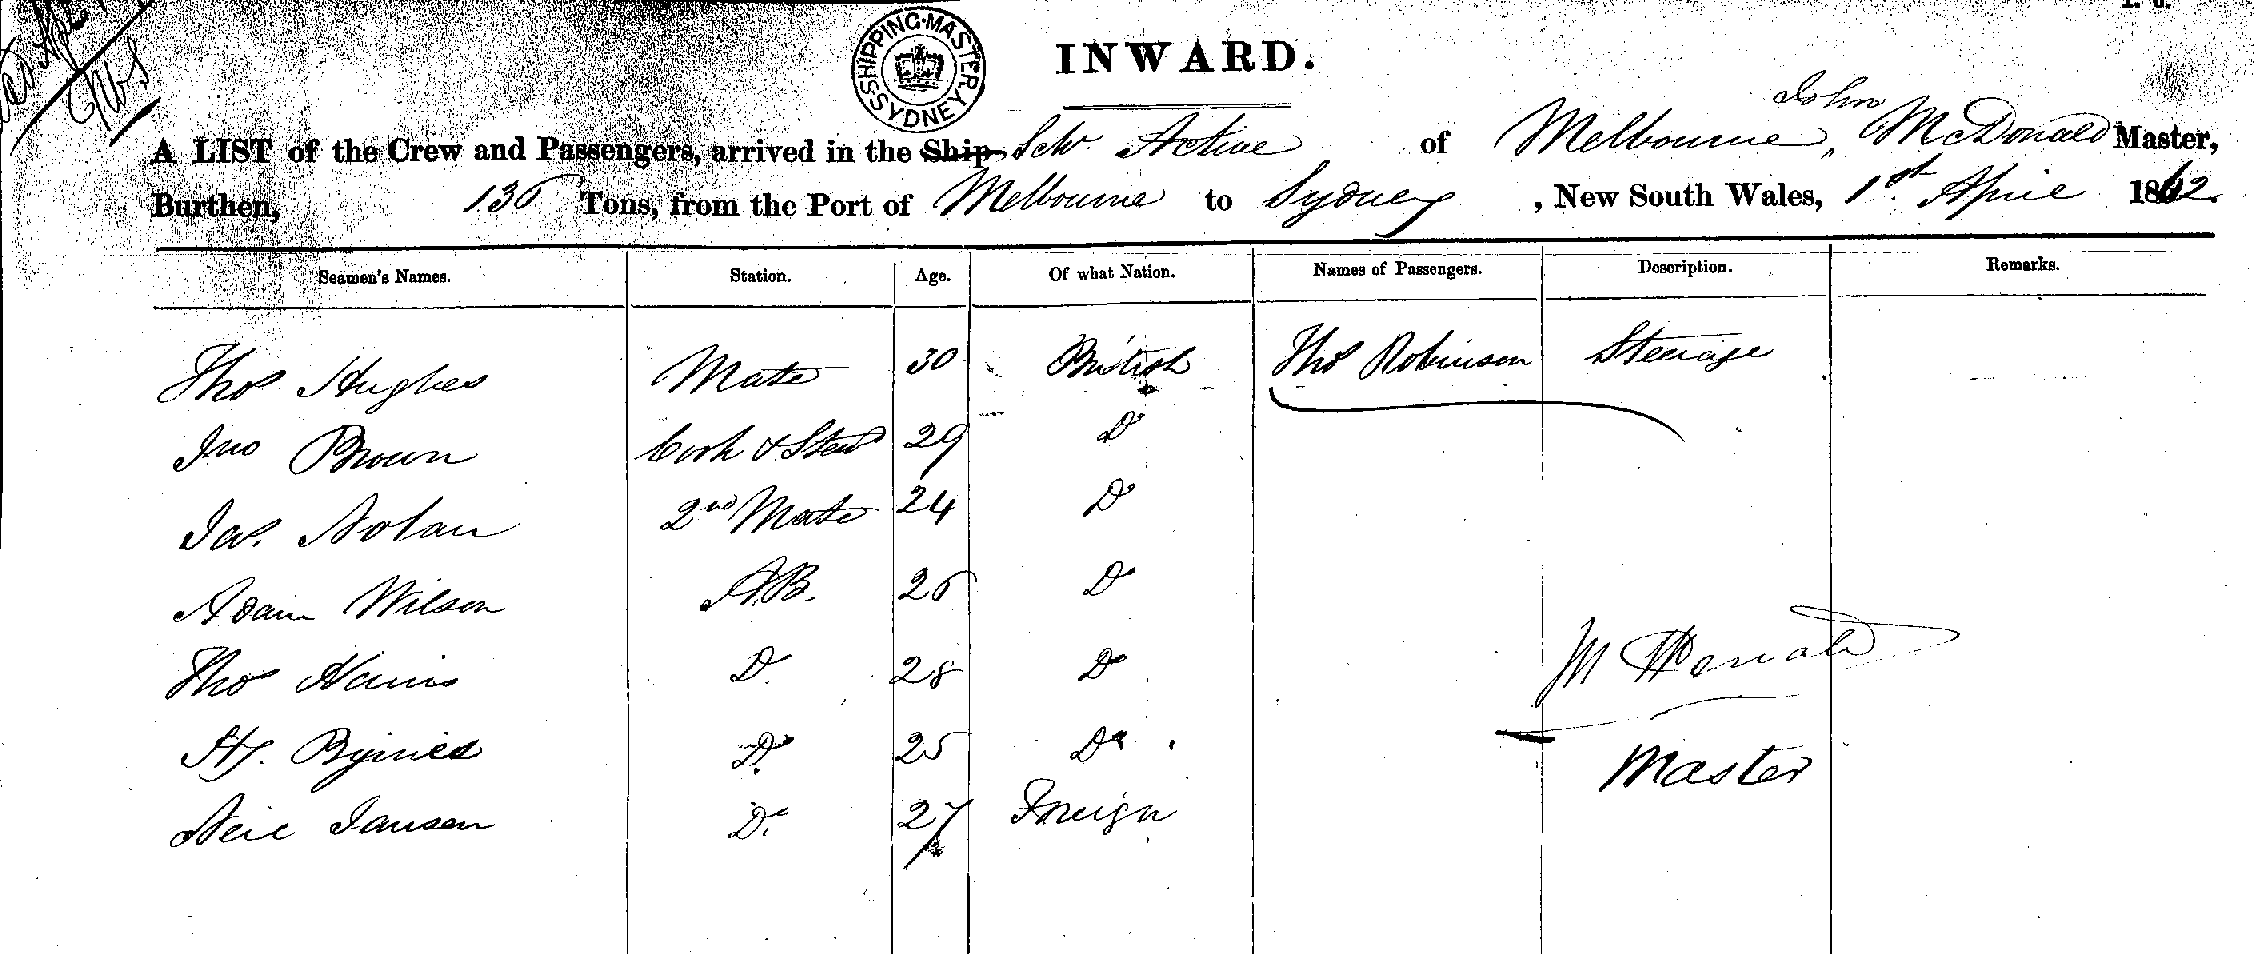 SHIPPING MASTER SYDNEY
INWARD.
John
A LIST of the Crew and Passengers, arrived in the Ship Schr Active of Melbourne, McDonald Master,
Burthen, 136 Tons, from the Port of Melbourne to Sydney, New South Wales, 1st April 1862.
Seamen's Names. Station. Age. Of what Nation. Names of Passengers. Description. Remarks.
Thos Hughes Mate 30 British Thos Robinson Steerage
Jno Brown Cook & Stewd 29 Do
Jas. Nolan 2nd Mate 24 Do
Adam Wilson A.B. 26 Do
Thos Harris Do 28 Do
Hy. Byrnes Do 25 Do
Jansen Do 27 Foreign
McDonald
Master